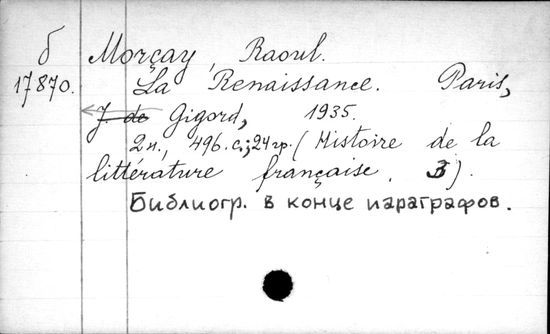 б Morçay, Raoul.
17870. La Renaissance. Paris,
J. de Gigord, 1935.
2 н., 496 с.; 24 гр. (Histoire de la
littérature française. 3).
Библиогр. в конце параграфов.